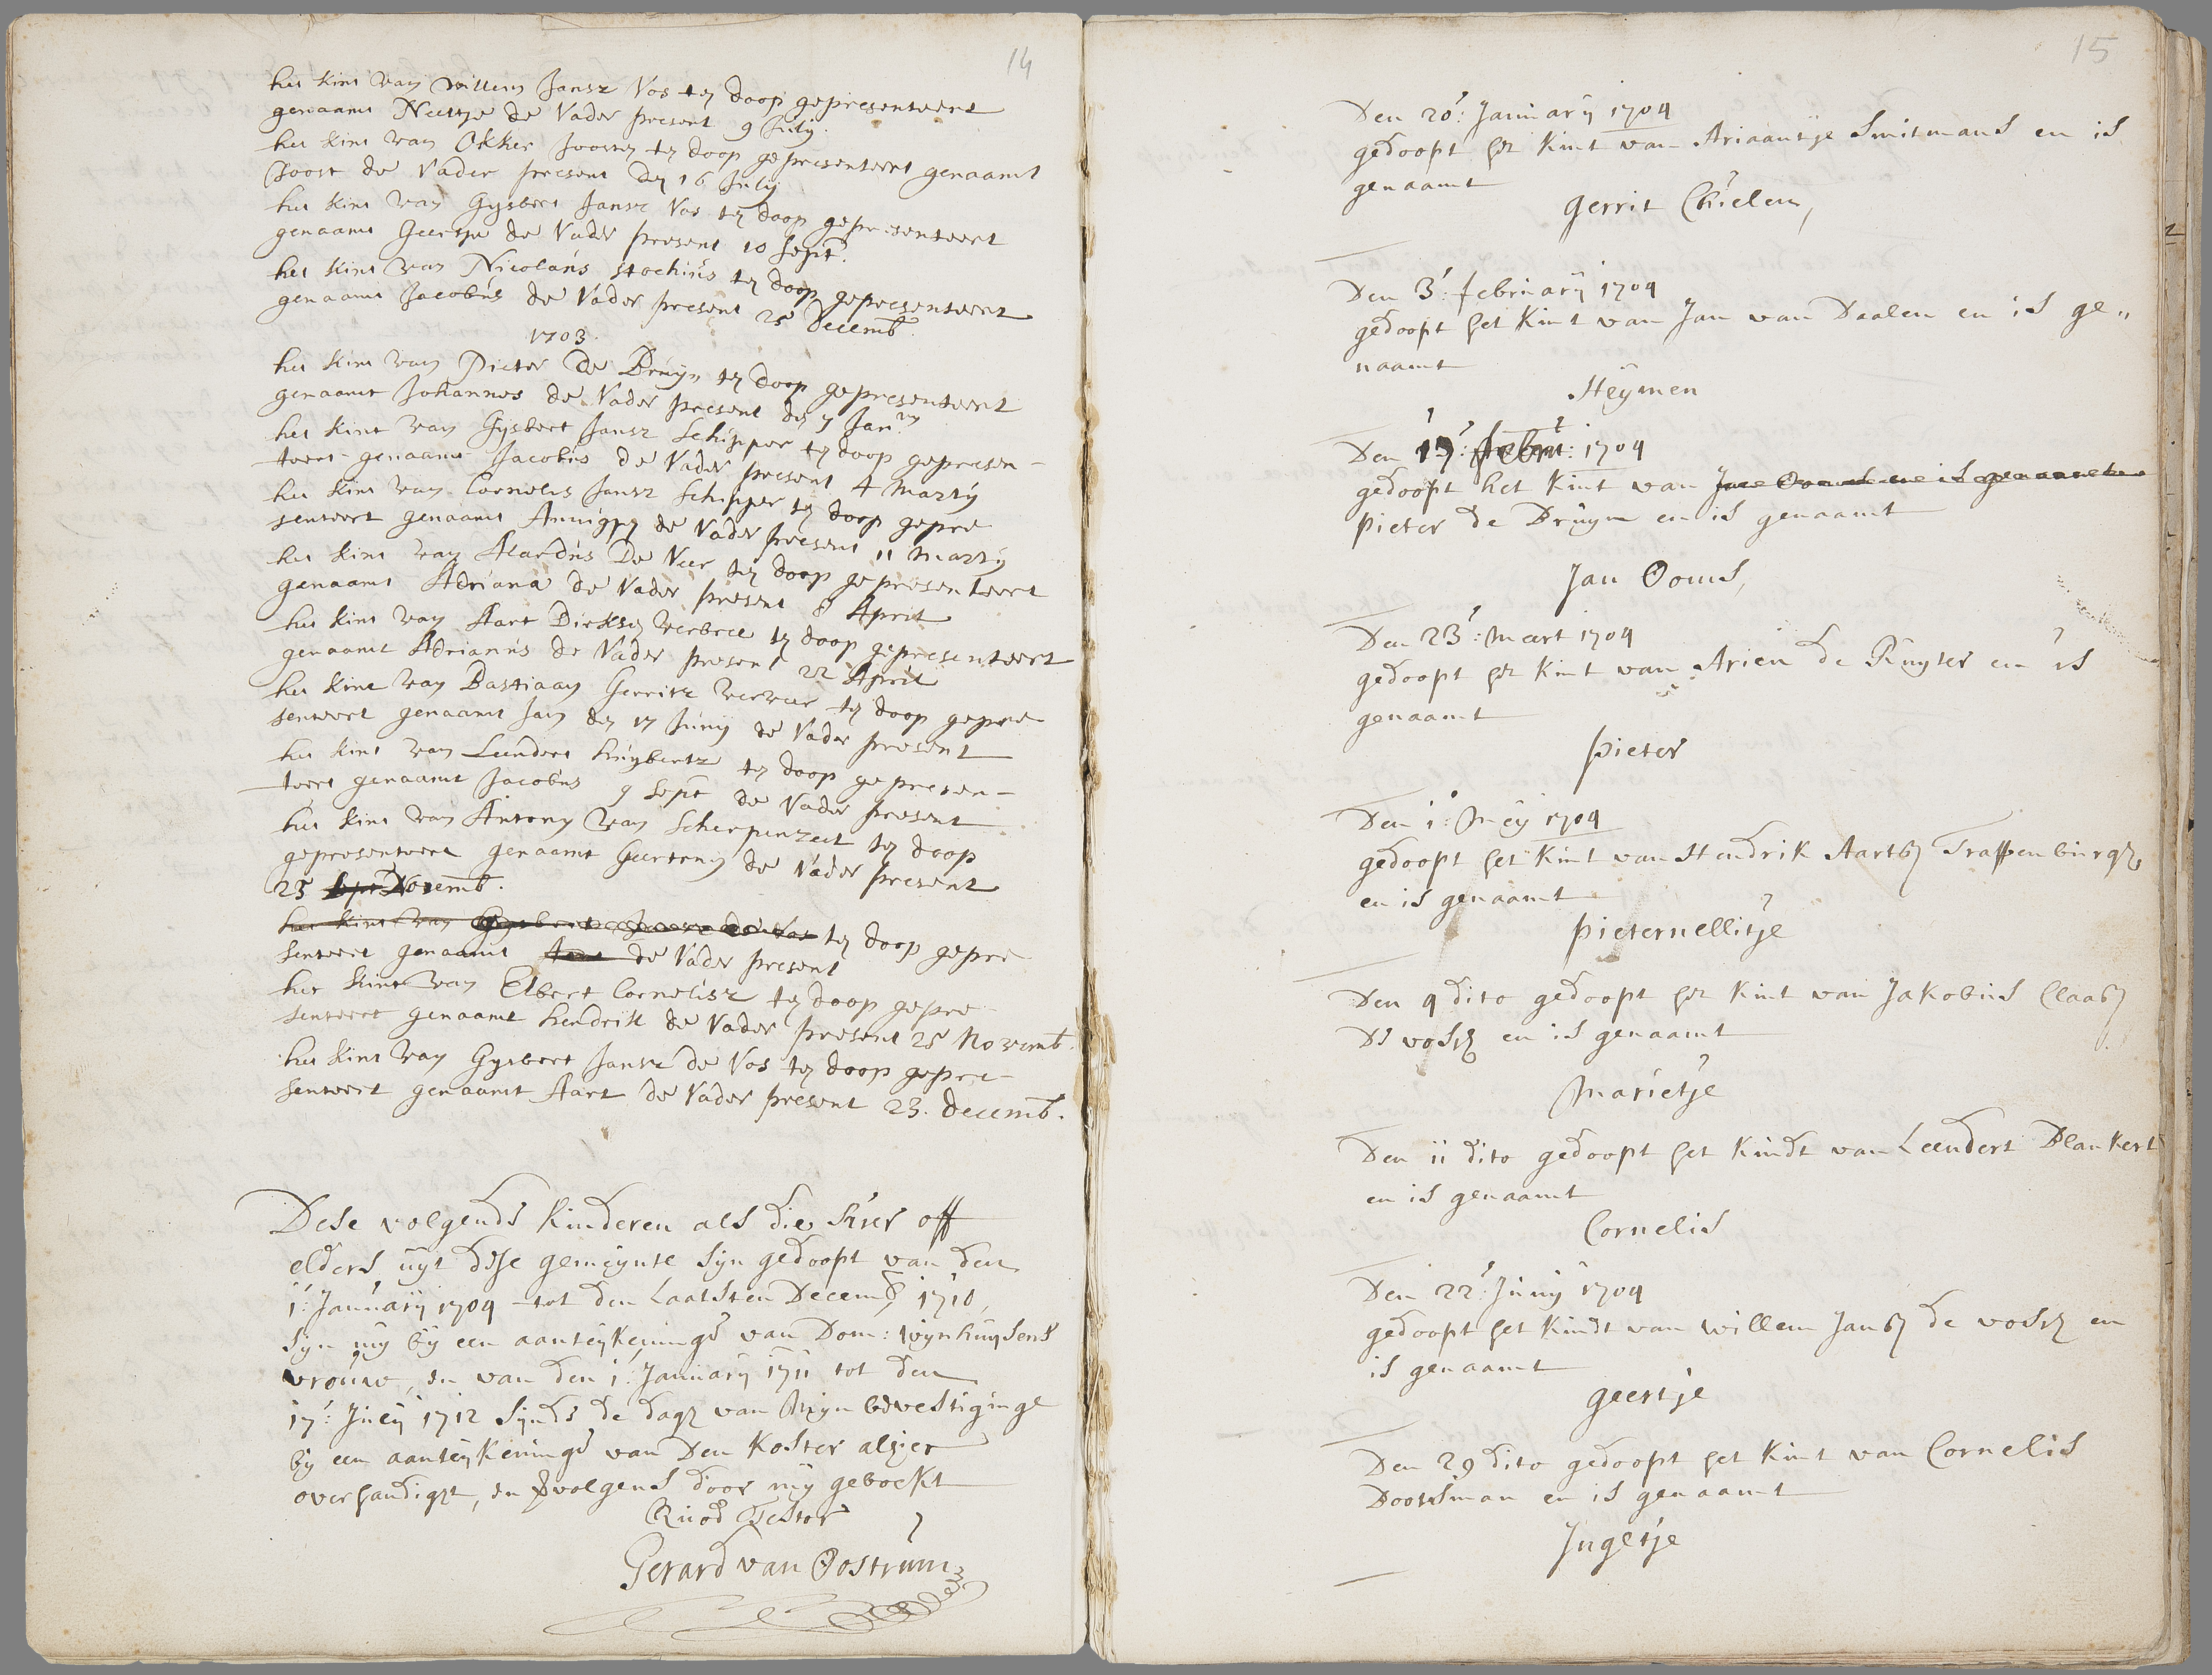 14
het kint van willem Jansz Vos ten doop gepresenteert
genaamt Neeltje de Vader present 9 July.
het kint van Okker Joosten ten doop gepresenteert genaamt
Joost de Vader present den 16 July
het kint van Gysbert Jansz Vos ten doop gepresenteert
genaamt Geertje de Vader present 10 Sept.
het kint van Nicolaus Stochius ten doop gepresenteert
genaamt Jacobus de Vader present 25 Decemb
1703.
het kint van Pieter De Bruyn ten doop gepresenteert
genaamt Johannes de Vader present den 7 Jan.
het kint van Gysbert Jansz Schipper ten doop gepresen-
teert genaamt Jacobus de Vader present 4 Marty
het kint van Cornelis Jansz Schipper ten doop gepre
senteert genaamt Annigje de Vader present 11 Marty
het kint van Alardus De Veer ten doop gepresenteert
genaamt Adriana de Vader present 8 April
het kint van Aart Dirksen verbree ten doop gepresenteert
genaamt Adrianus de Vader present 22 April
het kint van Bastiaan Gerritz verveer ten doop gepre
senteert genaamt Jan den 17 Juny de Vader present
het kint van Leendert huybertz ten doop gepresen-
teert genaamt Jacobus 9 Sept de Vader present
het kint van Antony van Scherpenzeel ten doop
gepresenteert genaamt Geertruy de Vader present
25 Sept Novemb.
het kint van Gysbert Jansz de Vos ten doop gepre
senteert genaamt Aart de Vader present
het kint van Elbert Cornelisz ten doop gepre
senteert genaamt hendrik de Vader present 25 Novemb.
het kint van Gysbert Jansz de Vos ten doop gepre-
senteert genaamt Aart de Vader present 23. decemb.
Dese volgende kinderen als die hier off
elders uyt dese gemeynte syn gedoopt van den
1: January 1704 tot den Laatsten Decemb 1710,
syn my by een aanteykeninge van Dom: Wynhuysens
vrouw, en van den 1: January 1711 tot den
17: July 1712 synde de dag van Myn bevestiginge
by een aanteykeninge van Den Koster alhier
overhandigt, en volgens door my geboekt
Quod Testor
Gerard van Oostrum
15
Den 20: January 1704
gedoopt het kint van Ariaantje Smitmans en is
genaamt
Gerrit Chielen,
Den 3: february 1704
gedoopt het kint van Jan van Daalen en is ge„
naamt
Heymen
Den 17: Febru: 1704
gedoopt het kint van Jan Ooms en is genaamt
Pieter de Bruyn en is genaamt
Jan Ooms,
Den 23: Meert 1704
gedoopt het kint van Arien de Ruyter en is
genaamt
Pieter
Den 1: Mey 1704
gedoopt het kint van Hendrik Aartsz Trappenburg,
en is genaamt
Pieternellitje
Den 4 dito gedoopt het kint van Jakobus Claasz
De vos en is genaamt
Marietje
Den 11 dito gedoopt het kindt van Leendert Blankert
en is genaamt
Cornelis
Den 22: Juny 1704
gedoopt het kindt van willem Jansz de vos en
is genaamt
Geertje
Den 29 dito gedoopt het kint van Cornelis
Doornman en is genaamt
Ingetje